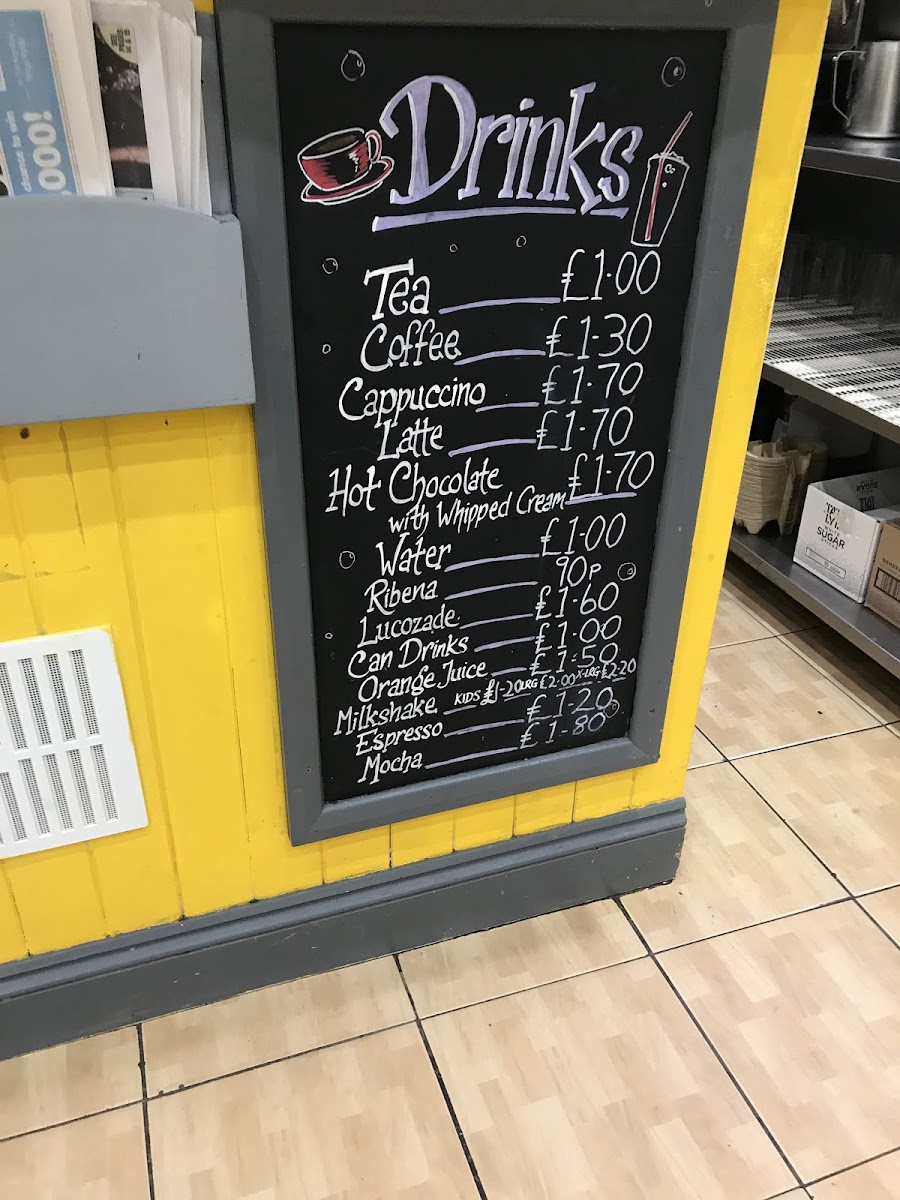 chance to win
000!
Drinks
Tea £1.00
Coffee £1.30
Cappuccino £1.70
Latte £1.70
Hot Chocolate £1.70
with Whipped Cream
Water £1.00
Ribena 90p
Lucozade £1.60
Can Drinks £1.00
Orange Juice £1.50
Milkshake KIDS £1.20 LRG £2.00 X-LRG £2.20
Espresso £1.20
Mocha £1.80
SUGAR